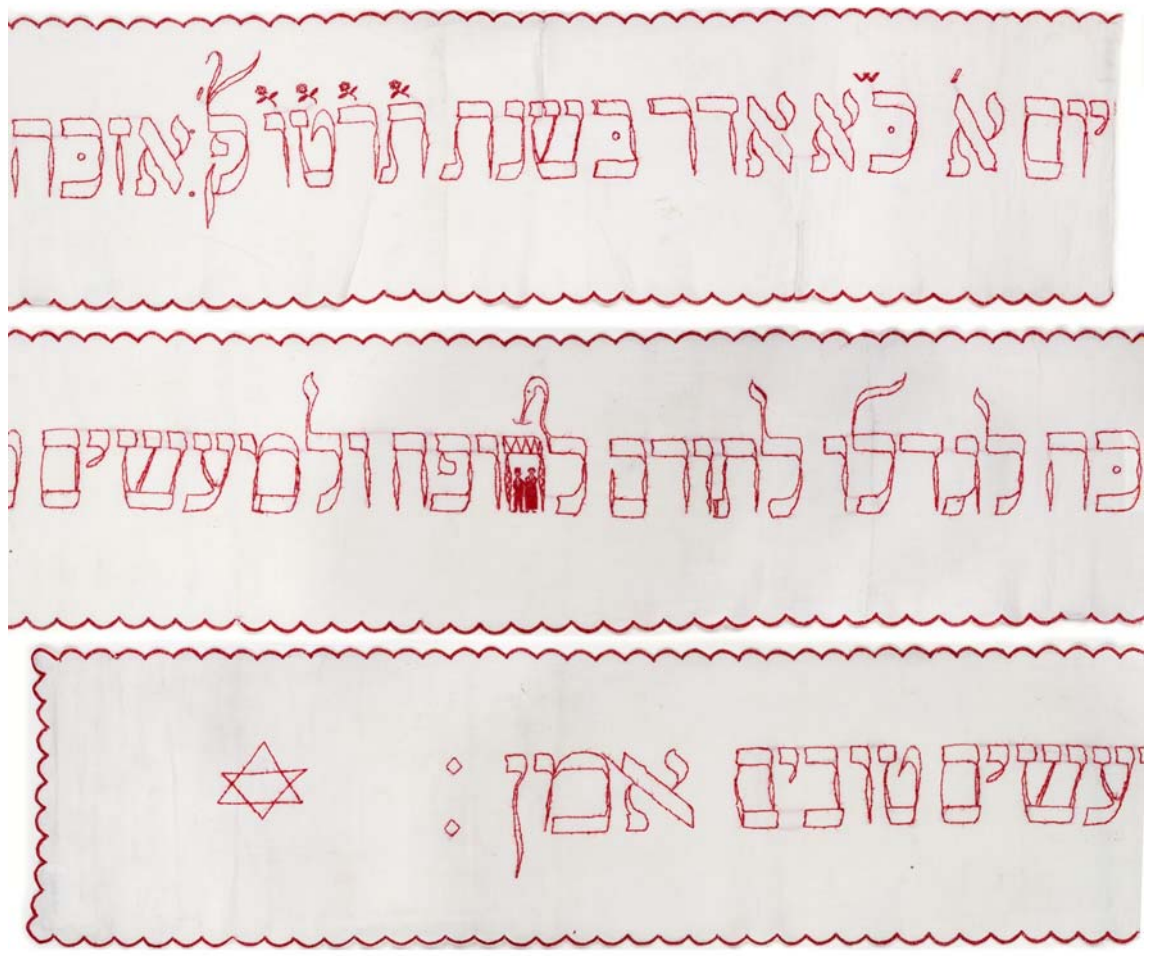 יום א' כּ״א אדר בּשנת תרטו לפ״ק: אזכּה
כּה לגדלו לתורה לחופה ולמעשים
עשים טובים אמן :